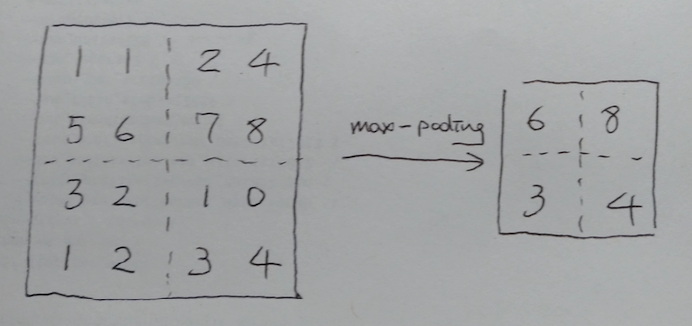 1 1 2 4
5 6 7 8
3 2 1 0
1 2 3 4
max-pooling
6 8
3 4